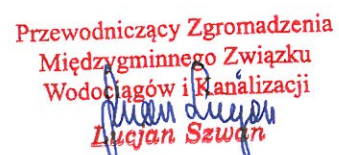 Przewodniczący Zgromadzenia
Międzygminnego Związku
Wodociągów i Kanalizacji
Lucjan Szwan